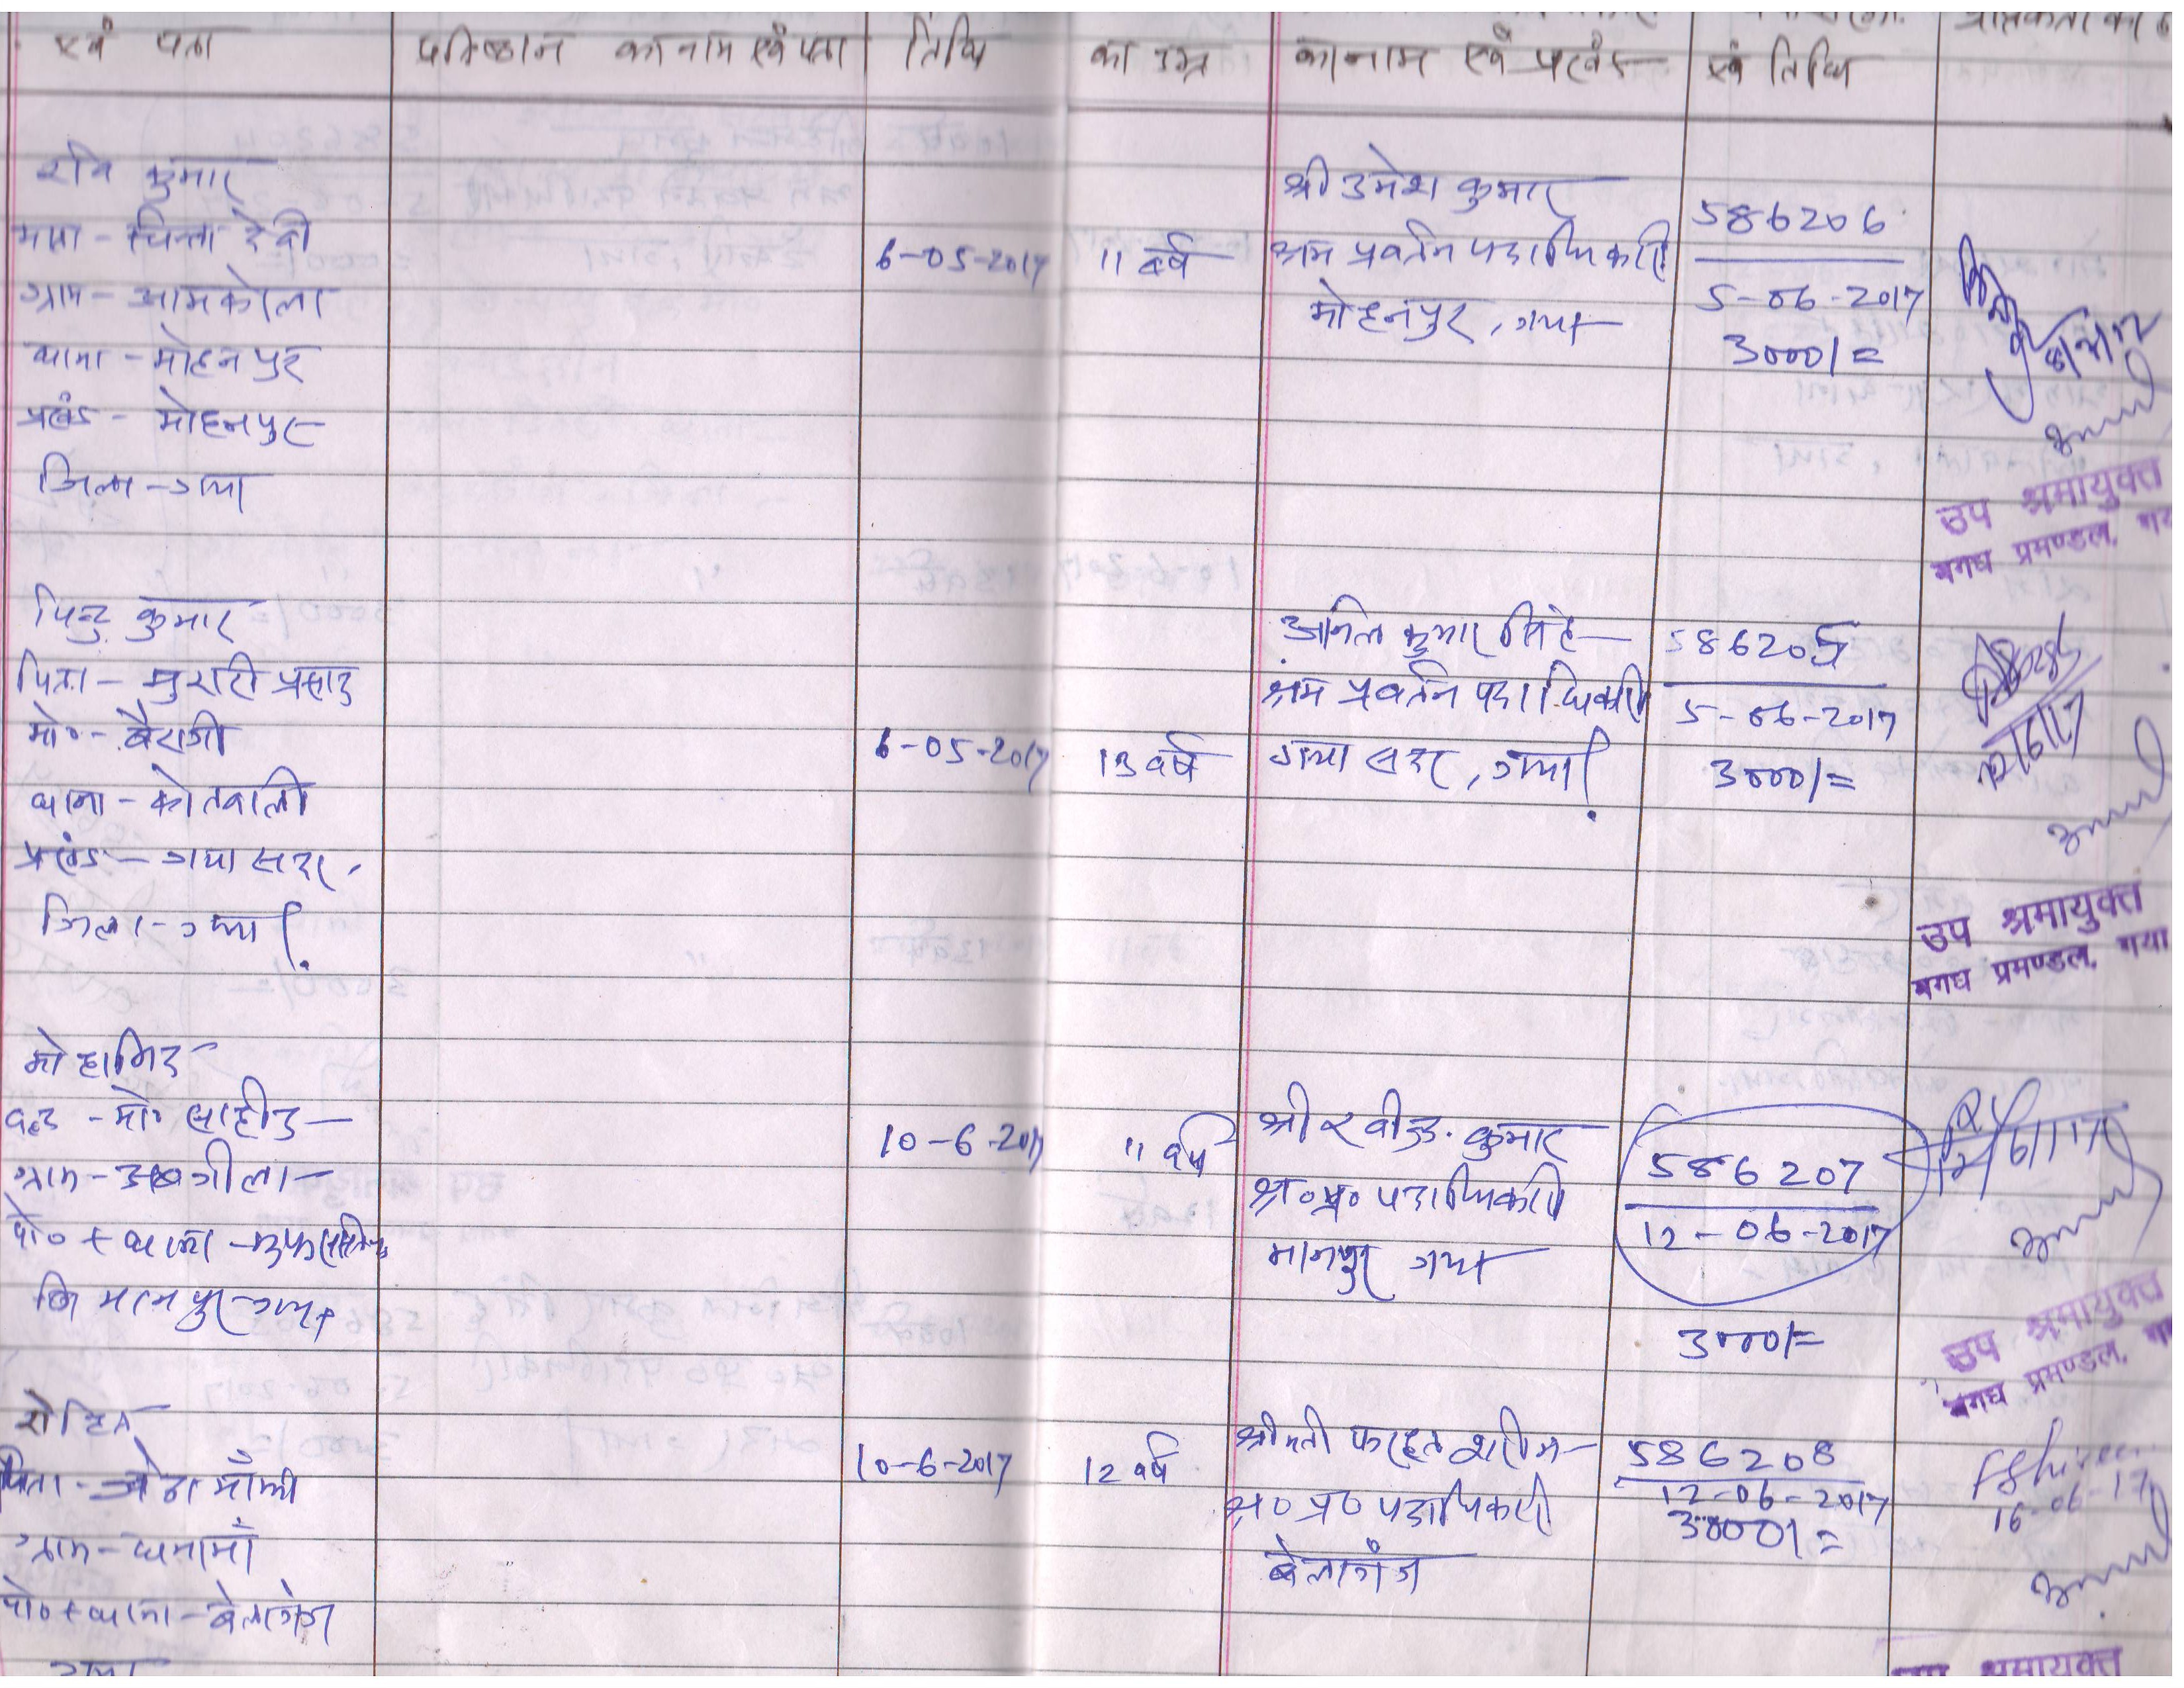 एवं पता
प्रतिष्ठान का नाम एवं पता
तिथि
का उम्र
का नाम एवं प्रखंड
एवं तिथि
रवि कुमार
माता - चिन्ता देवी
ग्राम - आमकोला
थाना - मोहनपुर
प्रखंड - मोहनपुर
जिला - गया
6-05-2017
11 वर्ष
श्री उमेश कुमार
श्रम प्रवर्तन पदाधिकारी
मोहनपुर, गया
586206
5-06-2017
3000/=
उप श्रमायुक्त
मगध प्रमण्डल, गया
पिन्टु कुमार
पिता - मुरारी प्रसाद
मो० - बैरागी
थाना - कोतवाली
प्रखंड - गया सदर,
जिला - गया।
6-05-2017
13 वर्ष
अनिल कुमार सिंह
श्रम प्रवर्तन पदाधिकारी
गया सदर, गया।
586205
5-06-2017
3000/=
उप श्रमायुक्त
मगध प्रमण्डल, गया
मो हामिद
वल्द - मो० साहीद
ग्राम - अबगीला
पो० + थाना -
मानपुर गया
10-6-2017
11 वर्ष
श्री रवीन्द्र कुमार
श्र० प्र० पदाधिकारी
मानपुर गया
586207
12-06-2017
3000/=
उप श्रमायुक्त
मगध प्रमण्डल,
रोहित
पिता - माँझी
ग्राम - धनामाँ
पो० + थाना - बेलागंज
गया
10-6-2017
12 वर्ष
श्रीमती फरहत शीरीन
श्र० प्र० पदाधिकारी
बेलागंज
586208
12-06-2017
3000/=
16-06-17
उप श्रमायुक्त